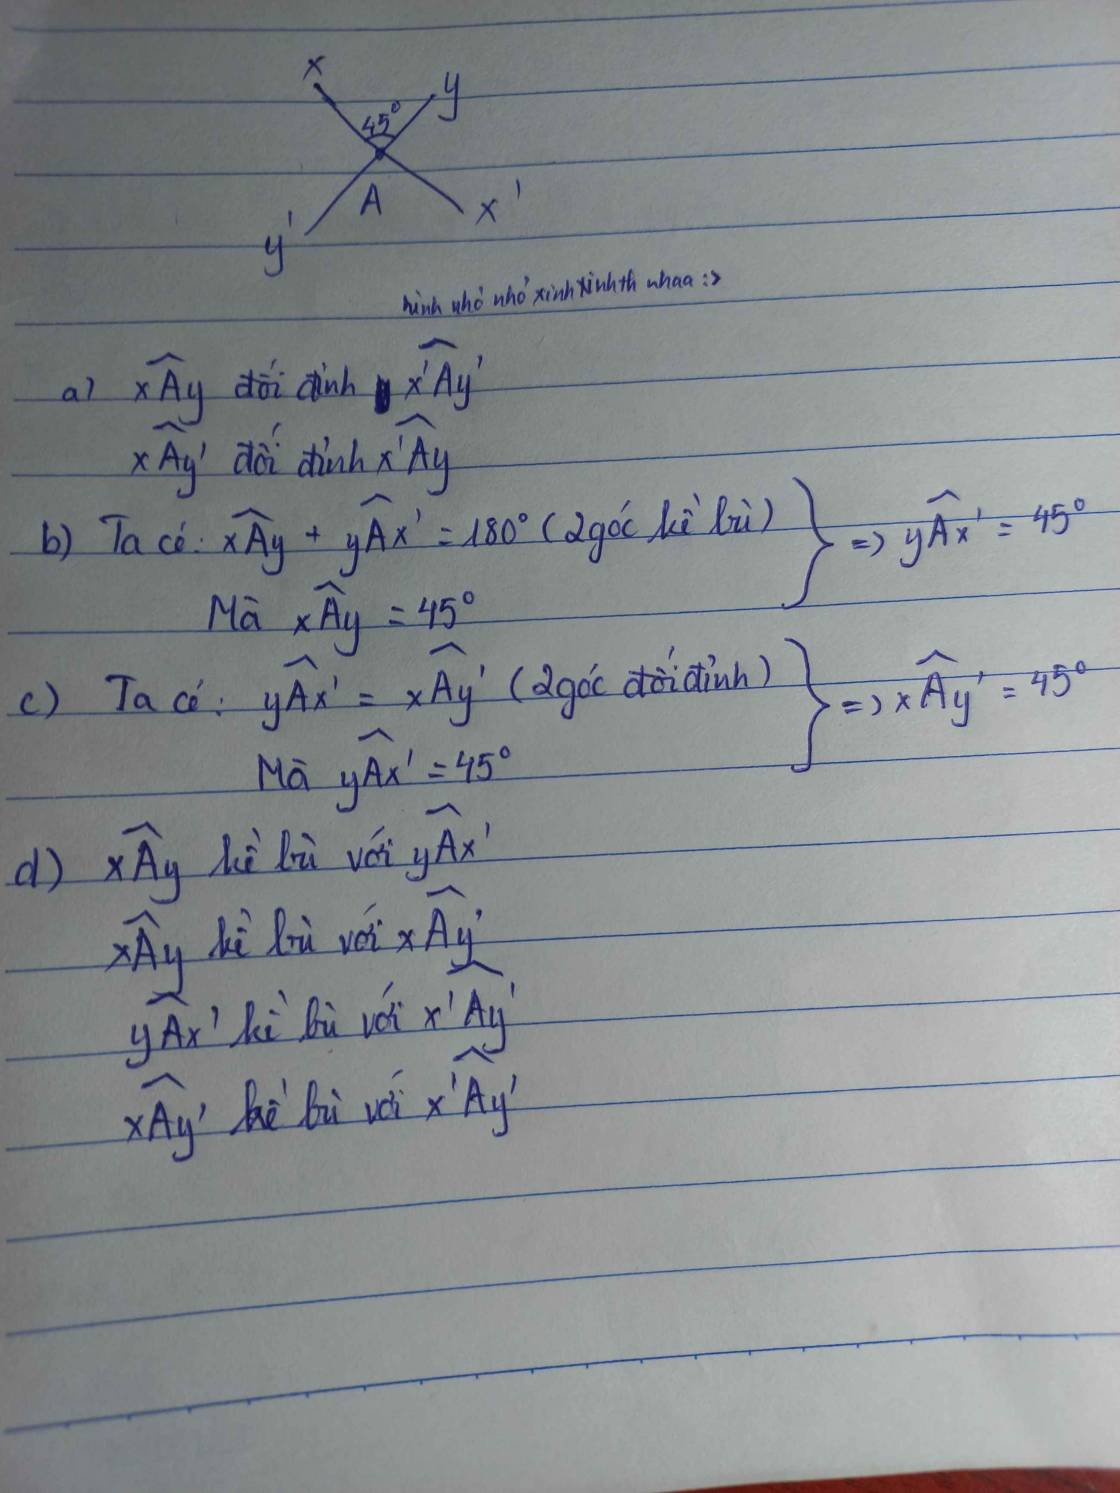 x
y
45°
A
x'
y'
hình nhỏ nhỏ xinh xinh th nhaa :>
a) xÂy đối đỉnh x'Ây'
xÂy' đối đỉnh x'Ây
b) Ta có: xÂy + yÂx' = 180° (2 góc kề bù) } => yÂx' = 45°
Mà xÂy = 45°
c) Ta có: yÂx' = xÂy' (2 góc đối đỉnh) } => xÂy' = 45°
Mà yÂx' = 45°
d) xÂy kề bù với yÂx'
xÂy kề bù với xÂy'
yÂx' kề bù với x'Ây'
xÂy' kề bù với x'Ây'